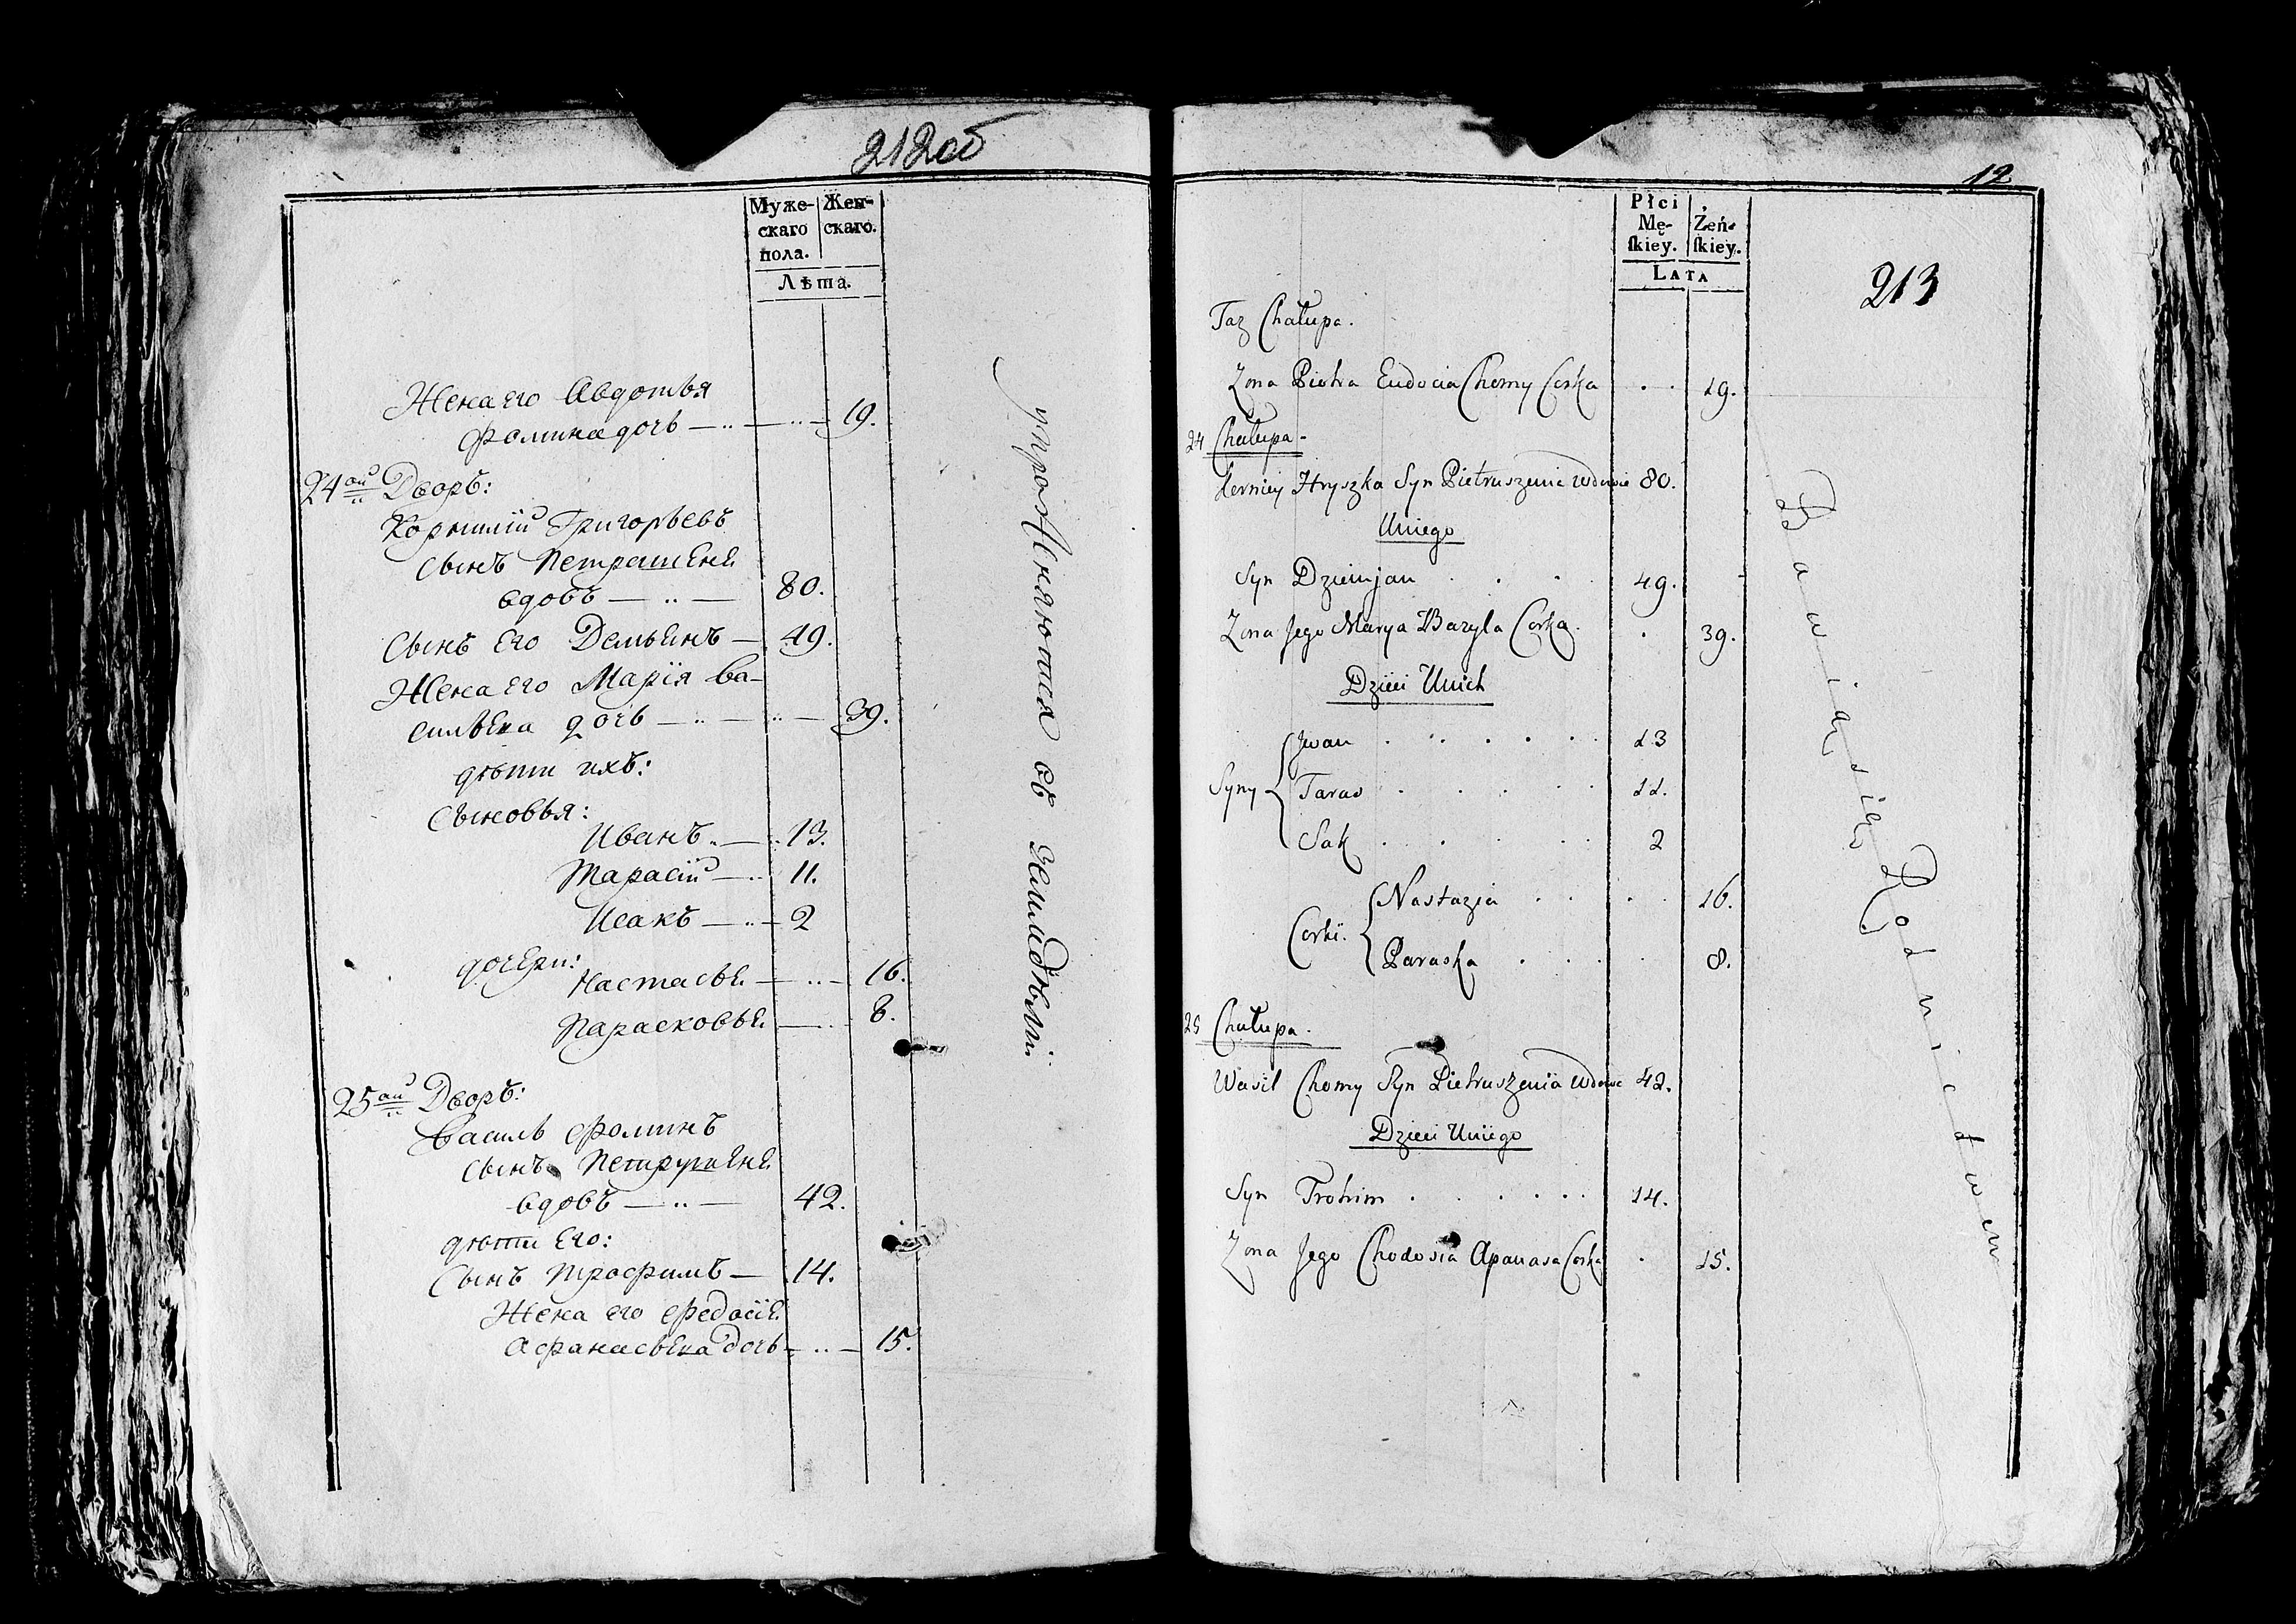 212об
Муже-
скаго
пола.
Жен-
скаго.
Лѣта.
Жена его Авдотья
Фомина дочь — 19.
24ый Дворъ:
Корнилій Григорьевъ
сынъ Петрашеня
вдовъ — 80.
Сынъ его Демьянъ — 49.
Жена его Марія Ва-
сильева дочь — 39.
дѣти ихъ:
Сыновья:
Иванъ — 13.
Тарасій — 11.
Исакъ — 2
дочери:
Настасья — 16.
Парасковья — 8.
25ый Дворъ:
Василь Фоминъ
сынъ Петрушеня
вдовъ — 42.
дѣти его:
Сынъ Трофимъ — 14.
Жена его Федосія
Афанасьева дочь — 15.
упражняются въ земледѣліи.
12
Płci
Mę-
skiey.
Żeń-
skiey.
Lata
213
Taż Chałupa.
Zona Piotra Eudocia Chomy Corka . . 19.
24 Chałupa -
Kerniey Hryszka Syn Pietruszenia wdowiec 80.
U niego
Syn Dziemjan . . . 49.
Zona Jego Marya Bazyla Corka . 39.
Dzieci U nich
Syny
Jwan . . . . . . 13
Taras . . . . . 11.
Sak . . . . . 2
Corki.
Nastazia . . . . 16.
Paraska . . . . 8.
25 Chałupa.
Wasil Chomy Syn Pietruszenia wdowiec 42.
Dzieci U niego
Syn Trohim . . . . . . 14.
Zona Jego Chodosia Apanasa Corka . 15.
Bawią się Rolnictwem